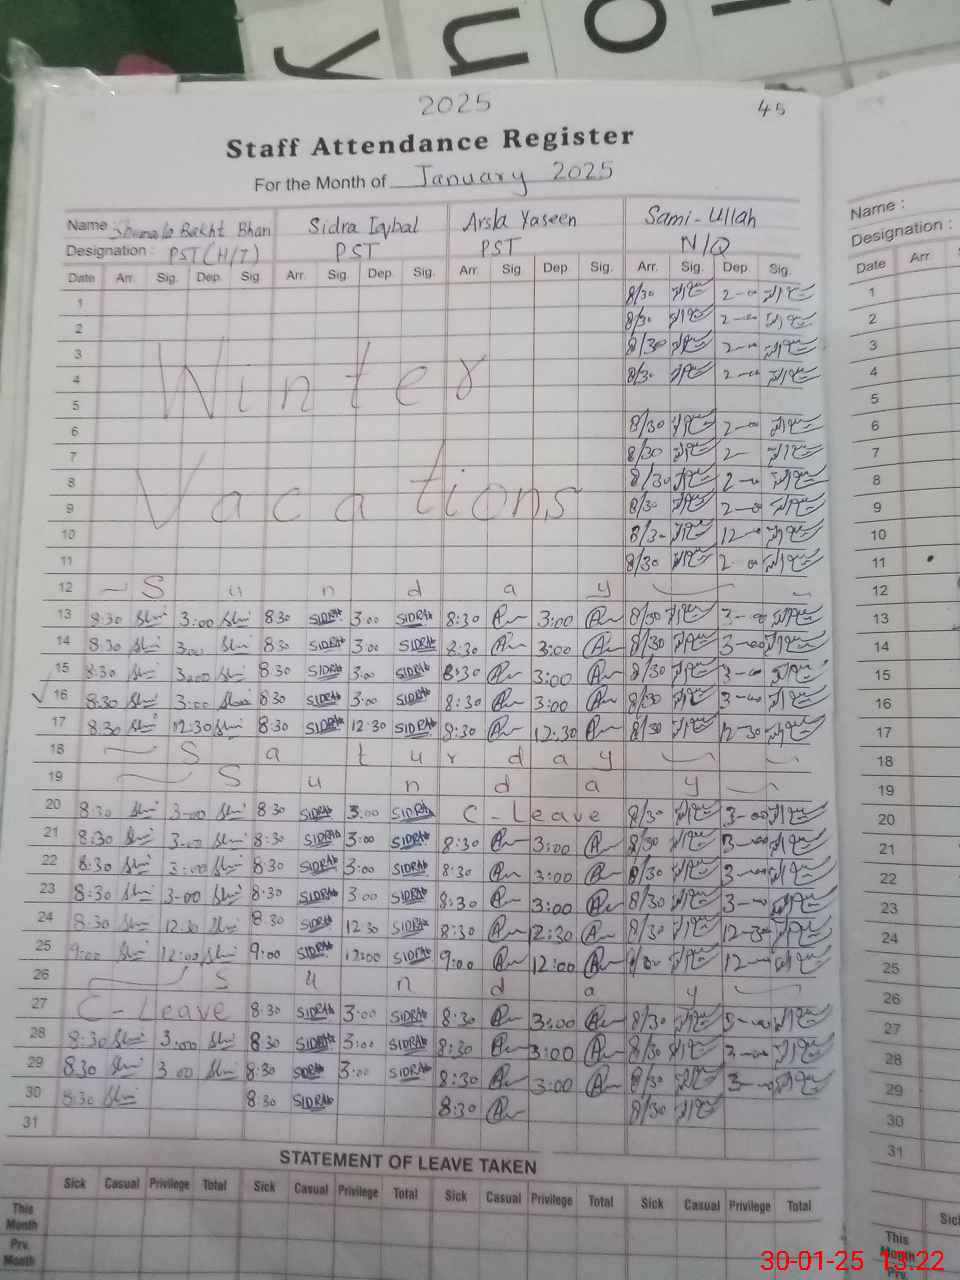 y u o l
2025
45
Staff Attendance Register
For the Month of January 2025
Name Bakht Bhan Sidra Iqbal Arsla Yaseen Sami-Ullah
Designation : PST(H/T) PST PST N/Q
Date Arr. Sig. Dep. Sig. Arr. Sig. Dep. Sig. Arr. Sig Dep. Sig. Arr. Sig. Dep Sig.
1 8/30 2-00
2 8/30 2-00
3 8/30 2-00
4 8/30 2-00
Winter
5
6 8/30 2-00
7 8/30 2-
8 8/30 2-00
Vacations
9 8/30 2-00
10 8/3- 12-00
11 8/30 2-00
12 Sunday
13 8:30 3:00 8:30 SIDRA 3:00 SIDRA 8:30 3:00 8/30 3-00
14 8:30 3:00 8:30 SIDRA 3:00 SIDRA 8:30 3:00 8/30 3-00
15 8:30 3:00 8:30 SIDRA 3:00 SIDRA 8:30 3:00 8/30 3-00
16 8:30 3:00 8:30 SIDRA 3:00 SIDRA 8:30 3:00 8/30 3-00
17 8:30 12:30 8:30 SIDRA 12:30 SIDRA 8:30 12:30 8/30 12-30
18 Saturday
19 Sunday
20 8:30 3-00 8:30 SIDRA 3:00 SIDRA C-Leave 8/30 3-00
21 8:30 3-00 8:30 SIDRA 3:00 SIDRA 8:30 3:00 8/30 3-00
22 8:30 3:00 8:30 SIDRA 3:00 SIDRA 8:30 3:00 8/30 3-00
23 8:30 3-00 8:30 SIDRA 3:00 SIDRA 8:30 3:00 8/30 3-00
24 8:30 12:30 8:30 SIDRA 12:30 SIDRA 8:30 12:30 8/30 12-30
25 9:00 12:00 9:00 SIDRA 12:00 SIDRA 9:00 12:00 12-00
26 Sunday
27 C-Leave 8:30 SIDRA 3:00 SIDRA 8:30 3:00 8/30 3-00
28 8:30 3:00 8:30 SIDRA 3:00 SIDRA 8:30 3:00 8/30 3-00
29 8:30 3:00 8:30 SIDRA 3:00 SIDRA 8:30 3:00 8/30 3-00
30 8:30 8:30 SIDRA 8:30 8/30
31
STATEMENT OF LEAVE TAKEN
Sick Casual Privilege Total Sick Casual Privilege Total Sick Casual Privilege Total Sick Casual Privilege Total
This Month
Prv. Month
Name :
Designation :
Date Arr.
1
2
3
4
5
6
7
8
9
10
11
12
13
14
15
16
17
18
19
20
21
22
23
24
25
26
27
28
29
30
31
This Month
30-01-25 13:22